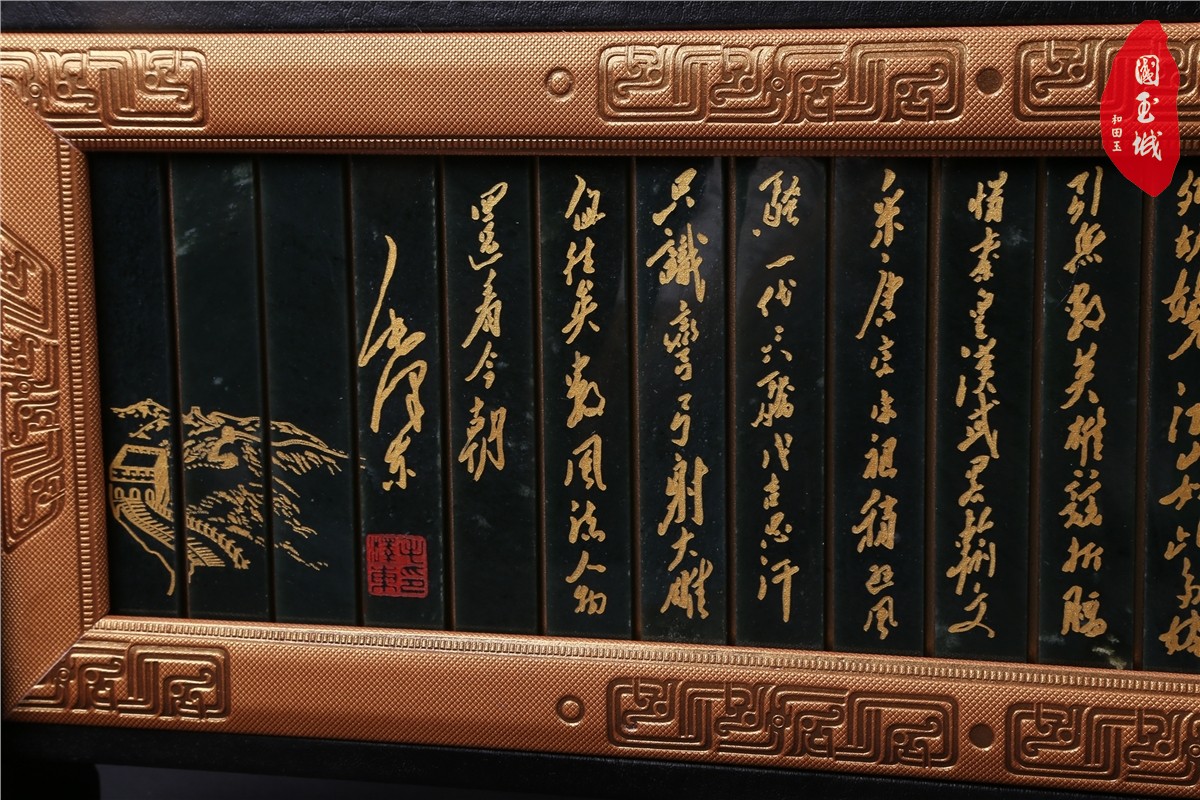 外妖嬈江山如此多嬌
引無數英雄競折腰
惜秦皇漢武略輸文
采唐宗宋祖稍遜風
騷一代天驕成吉思汗
只識彎弓射大雕
俱往矣數風流人物
還看今朝
毛澤東
毛澤東印
國玉城
和田玉